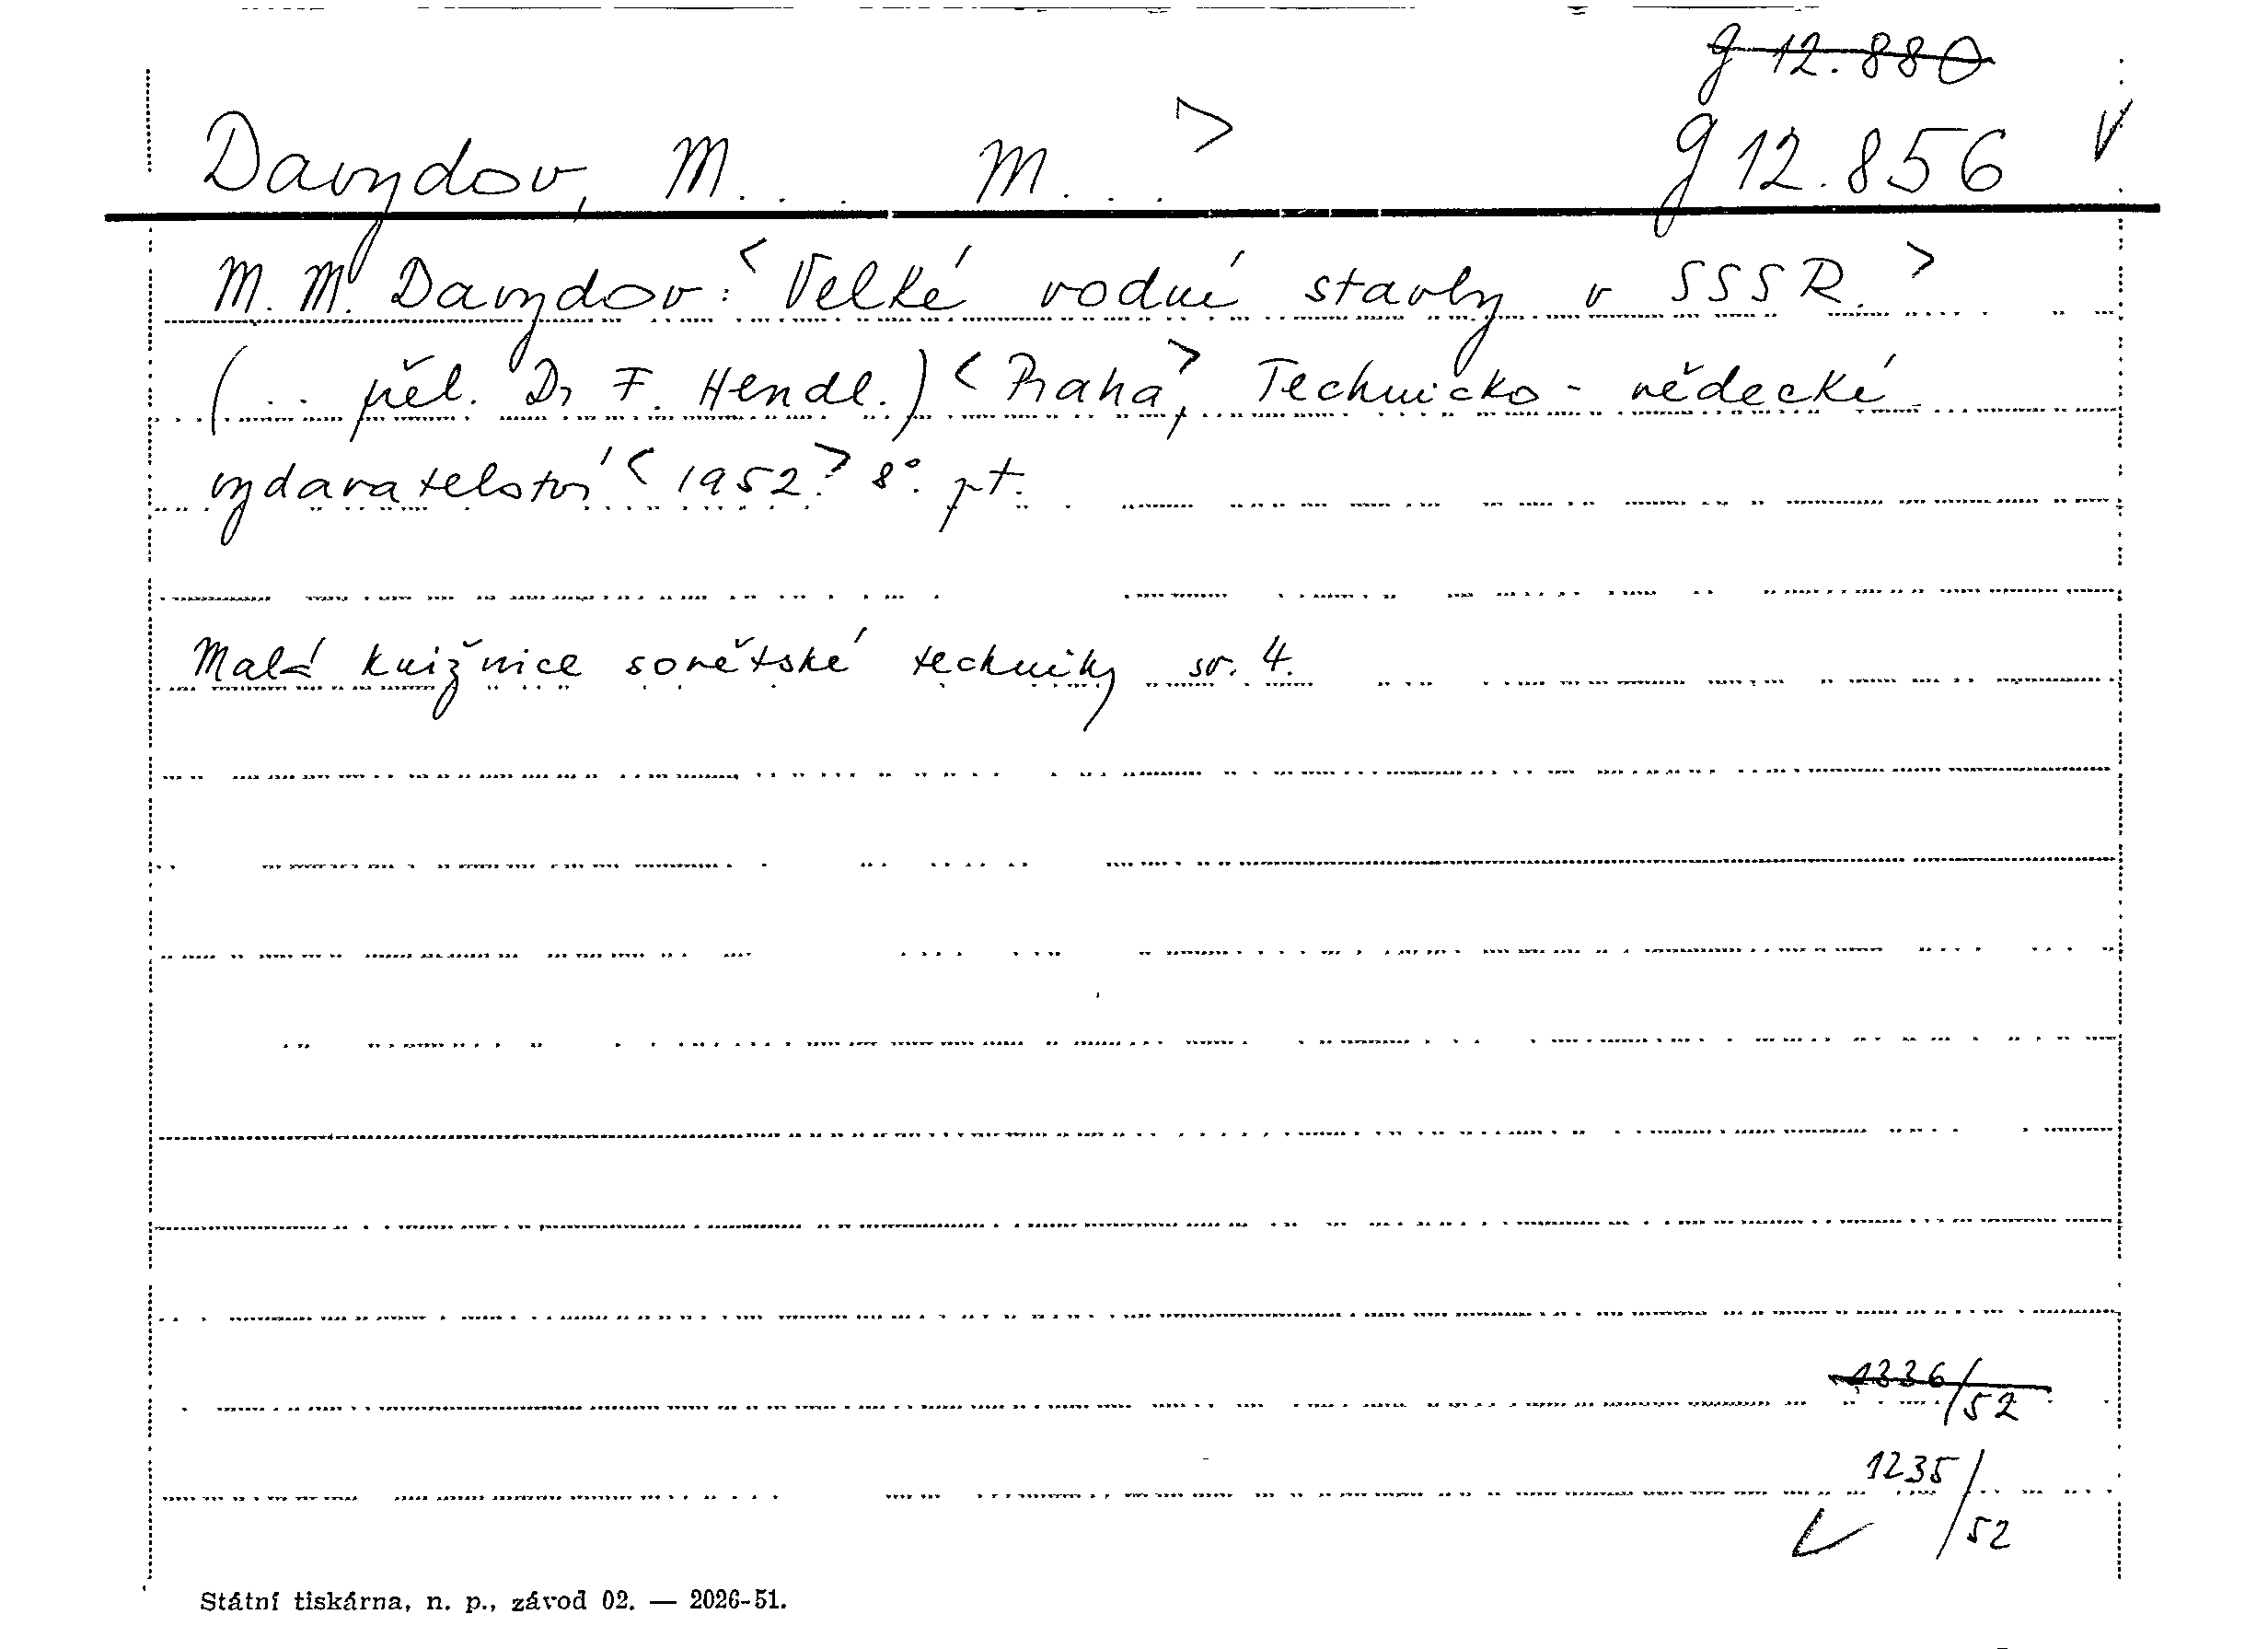 g 12.880
Davydov, M... M...> g 12.856 V
M. M. Davydov: <Velké vodní stavby v SSSR.>
(.. přel. Dr F. Hendl.) <Praha,> Technicko-vědecké
vydavatelství <1952.> 8°. pt.
Malá knižnice sovětské techniky sv. 4.
1336/52
1235/52
Státní tiskárna, n. p., závod 02. — 2026-51.